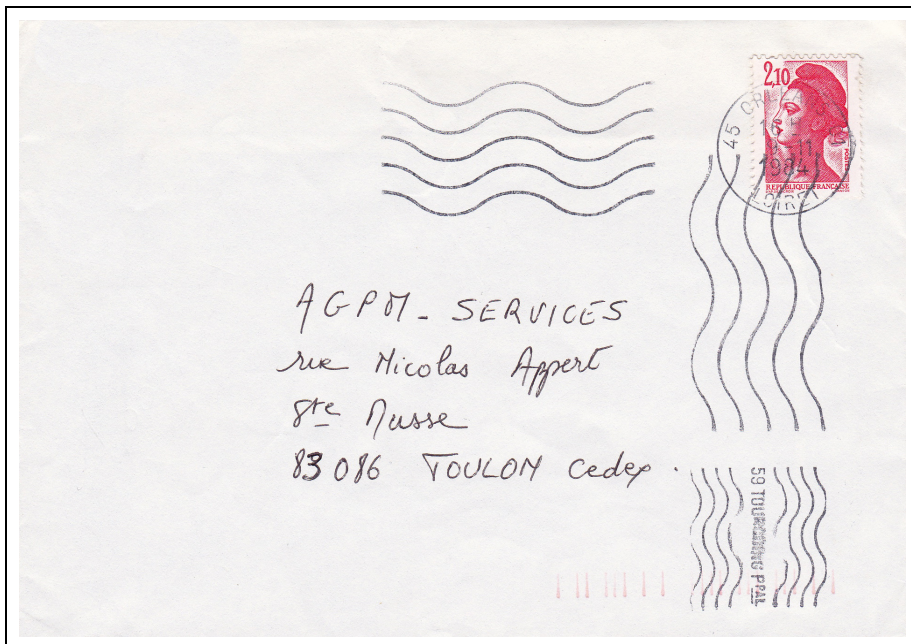 2,10
RÉPUBLIQUE FRANÇAISE
45
1984
LOIRET
AGPM - SERVICES
rue Nicolas Appert
Ste Musse
83086 TOULON Cedex.
59 TOURCOING PPAL